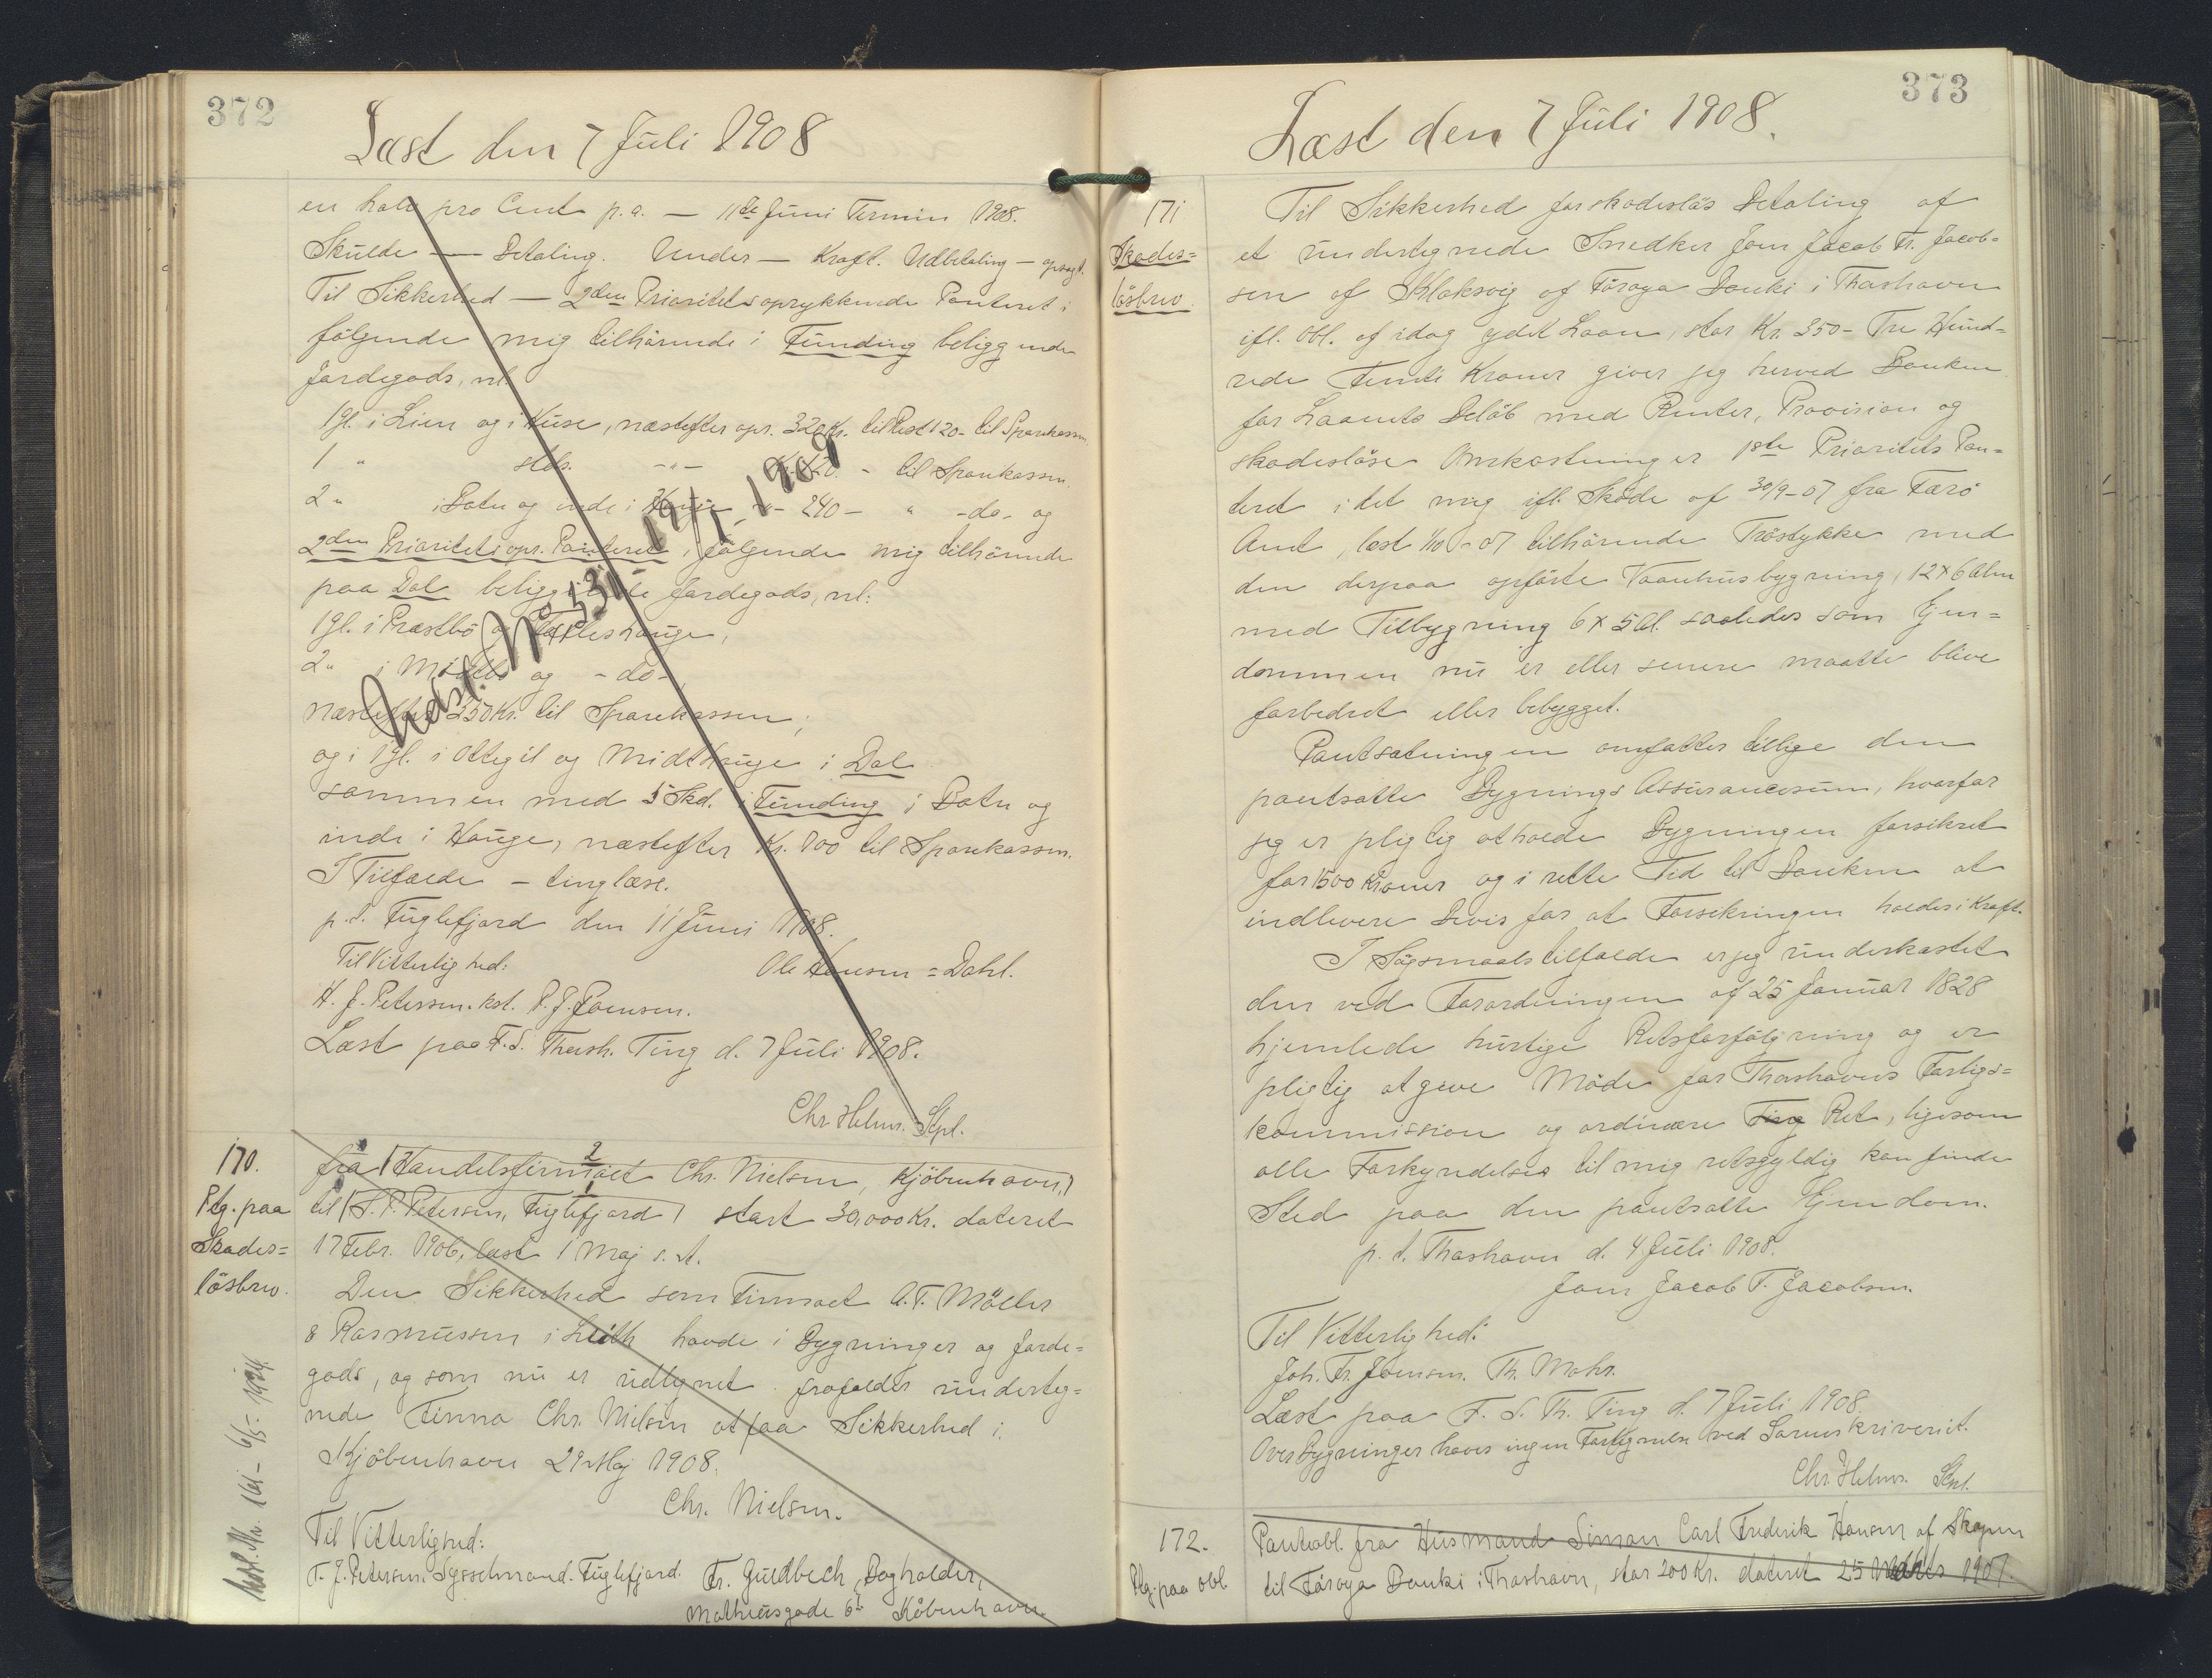 372
Læst den 7 Juli 1908
en halv pro Cent p.a. — 11te Juni Termin 1908.
Skulde — Betaling. Under — Kraft. Udbetaling — opsagt.
Til Sikkerhed — 2den Prioritets oprykkende Panteret i
følgende mig tilhørende i Funding beliggende
Jordegods, nl.
1 gl. i Lien og i Huse, næstefter opr. 320 Kr. til Rest 120- til Sparekassen.
1 " stds. -"- - til Sparekassen.
2 " i Botn og inde i Hauge -"- 240 - " -do- og
2den Prioritets opr. Panteret i følgende mig tilhørende
paa Dal beliggende Jordegods, nl:
1 gl. i Præstbø og
2 " i og -do-,
næstefter 350 Kr. til Sparekassen;
og i 1 gl. i Ottegil og Midthauge i Dal
sammen med 5 Skd. i Funding i Botn og
inde i Hauge, næstefter Kr. 800 til Sparekassen.
I Tilfælde — tinglæse.
p. t. Fuglefjord den 11 Juni 1908.
Til Vitterlighed: Ole Hansen = Dahl.
H. J. Petersen. kst. P. J. Joensen.
Læst paa F. S. Thorsh. Ting d. 7 Juli 1908.
Chr. Helms. Skpl.
19/1 - 1909
170.
Ptg. paa
Skades=
løsbrev.
fra Handelsfirmaet Chr. Nielsen, Kjøbenhavn,
til S. P. Petersen, Fuglefjord stort 30,000 Kr. dateret
17 Febr. 1906, læst 1 Maj s. A.
Den Sikkerhed som Firmaet A. T. Møller
& Rasmussen i Leith havde i Bygninger og Jorde=
gods, og som nu er udlignet frafalder underteg=
nede Firma Chr. Nielsen at faa Sikkerhed i.
Kjøbenhavn 29 Maj 1908.
Chr. Nielsen.
Til Vitterlighed:
T. J. Petersen. Sysselmand. Fuglefjord. Fr. Guldbech, Bogholder,
Matheusgade København.
6/5 - 1924.
373
Læst den 7 Juli 1908.
171
Skades=
løsbrev.
Til Sikkerhed for skadesløs Betaling af
et undertegnede Snedker Joen Jacob Fr. Jacob=
sen af Klaksvig af Føroya Banki i Thorshavn
ifl. Obl. af idag ydet Laan, stor Kr. 350- Tre Hund=
rede Femti Kroner giver jeg herved Banken
for Laanets Beløb med Renter, Provision og
skadesløse Omkostninger 1ste Prioritets Pan=
teret i det mig ifl. Skøde af 30/9-07 fra Færø
Amt, læst 1/10-07 tilhørende Trøstykke med
den derpaa opførte Vaanhusbygning, 12 x 6 Alen
med Tilbygning 6 x 5 Al. saaledes som Ejen=
dommen nu er eller senere maatte blive
forbedret eller bebygget.
Pantsætningen omfatter tillige den
pantsatte Bygnings Assurancesum, hvorfor
jeg er pligtig at holde Bygningen forsikret
for 1500 Kroner og i rette Tid til Banken at
indlevere Bevis for at Forsikringen holdes i Kraft.
I Søgsmaalstilfælde er jeg underkastet
den ved Forordningen af 25 Januar 1828
hjemlede hurtige Retsforfølgning og er
pligtig at give Møde for Thorshavns Forligs=
kommission og ordinære Ting Ret, ligesom
alle Forkyndelser til mig retsgyldig kan finde
Sted paa den pantsatte Ejendom.
p. t. Thorshavn d. 4 Juli 1908.
Joen Jacob F. Jacobsen.
Til Vitterlighed:
Joh. Fr. Joensen. Th. Mohr.
Læst paa F. S. Th. Ting d. 7 Juli 1908.
Over Bygninger haves ingen Fortegnelse ved Sorenskriveriet.
Chr. Helms. Skpl.
172.
Ptg. paa Obl
Panteobl. fra Husmand Simon Carl Frederik Hansen af Skopen
til Føroya Banki i Thorshavn, stor 200 Kr. dateret 25 Marts 1907.